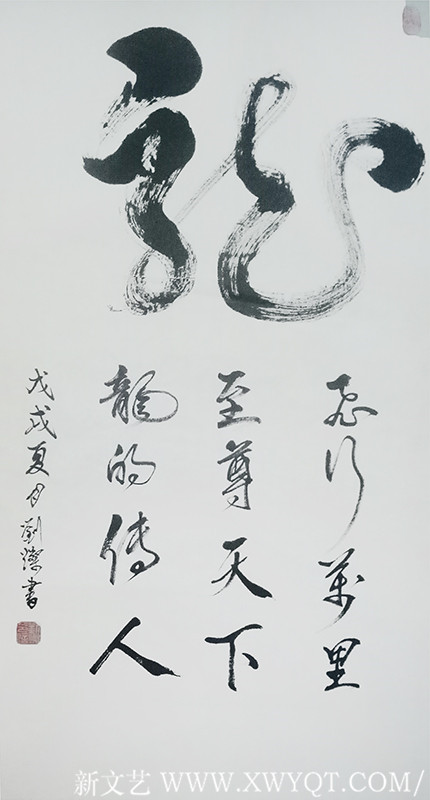 龍
飛行萬里
至尊天下
龍的傳人
戊戌夏月劉書
新文艺 WWW.XWYQT.COM/